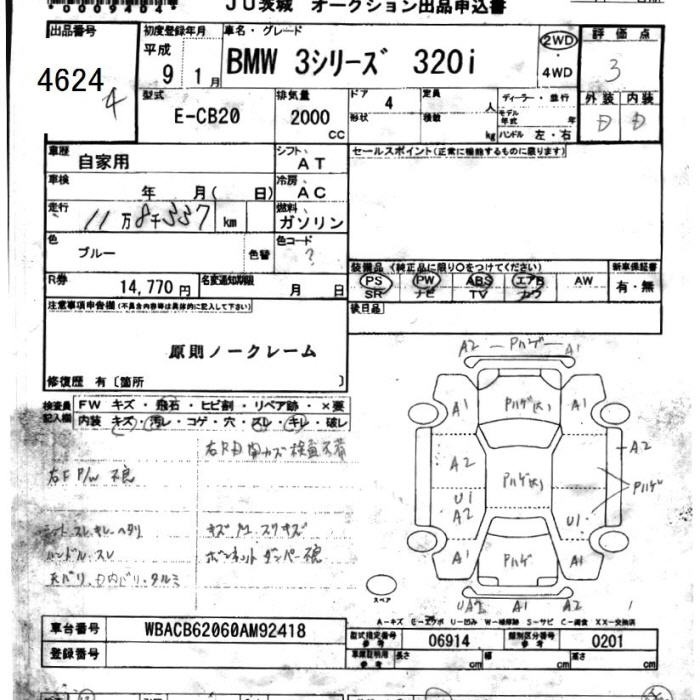 JU茨城 オークション出品申込書
出品番号 初度登録年月 車名・グレード 評価点
4624 平成 9年 1月 BMW 3シリーズ 320i 2WD・4WD 3
4
型式 排気量 ドア 4 定員 人 ディーラー・並行 外装 内装
E-CB20 2000 CC 形状 積載 kg モデル年式 年 ハンドル 左・右 D D
車歴 自家用 シフト AT セールスポイント(正常に機能するものに限ります)
車検 年 月(日) 冷房 AC
走行 11万8千557 km 燃料 ガソリン
色 ブルー 色替 色コード ?
装備品(純正品に限り○をつけてください) 新車保証書
R券 14,770円 名変通知期限 月 日 PS PW ABS エアB AW 有・無
SR ナビ TV カワ
注意事項申告欄(不具合内容等は具体的に記入して下さい) 後日品
原則ノークレーム
修復歴 有〔箇所 〕
検査員記入欄 FW キズ・飛石・ヒビ割・リペア跡・×要
内装 キズ・汚レ・コゲ・穴・スレ・キレ・破レ
右F P/W 不良
シート スレ キレ ヘタリ
ハンドル スレ
天バリ、D内バリ、タルミ
ボンネットダンパー不良
A2 Pハゲ A1
A1 Pハゲ(大) A1
A2 Pハゲ(大) A2
U1 A2 U1 Pハゲ
A1 Pハゲ A1
UA2 A1 A2
スペア
A-キズ E-エクボ U-凹み W-補修跡 S-サビ C-腐食 XX-交換済
車台番号 WBACB62060AM92418 型式指定番号 参考 06914 類別区分番号 参考 0201
登録番号 車庫証明用 参考 長さ cm 幅 cm 高さ cm